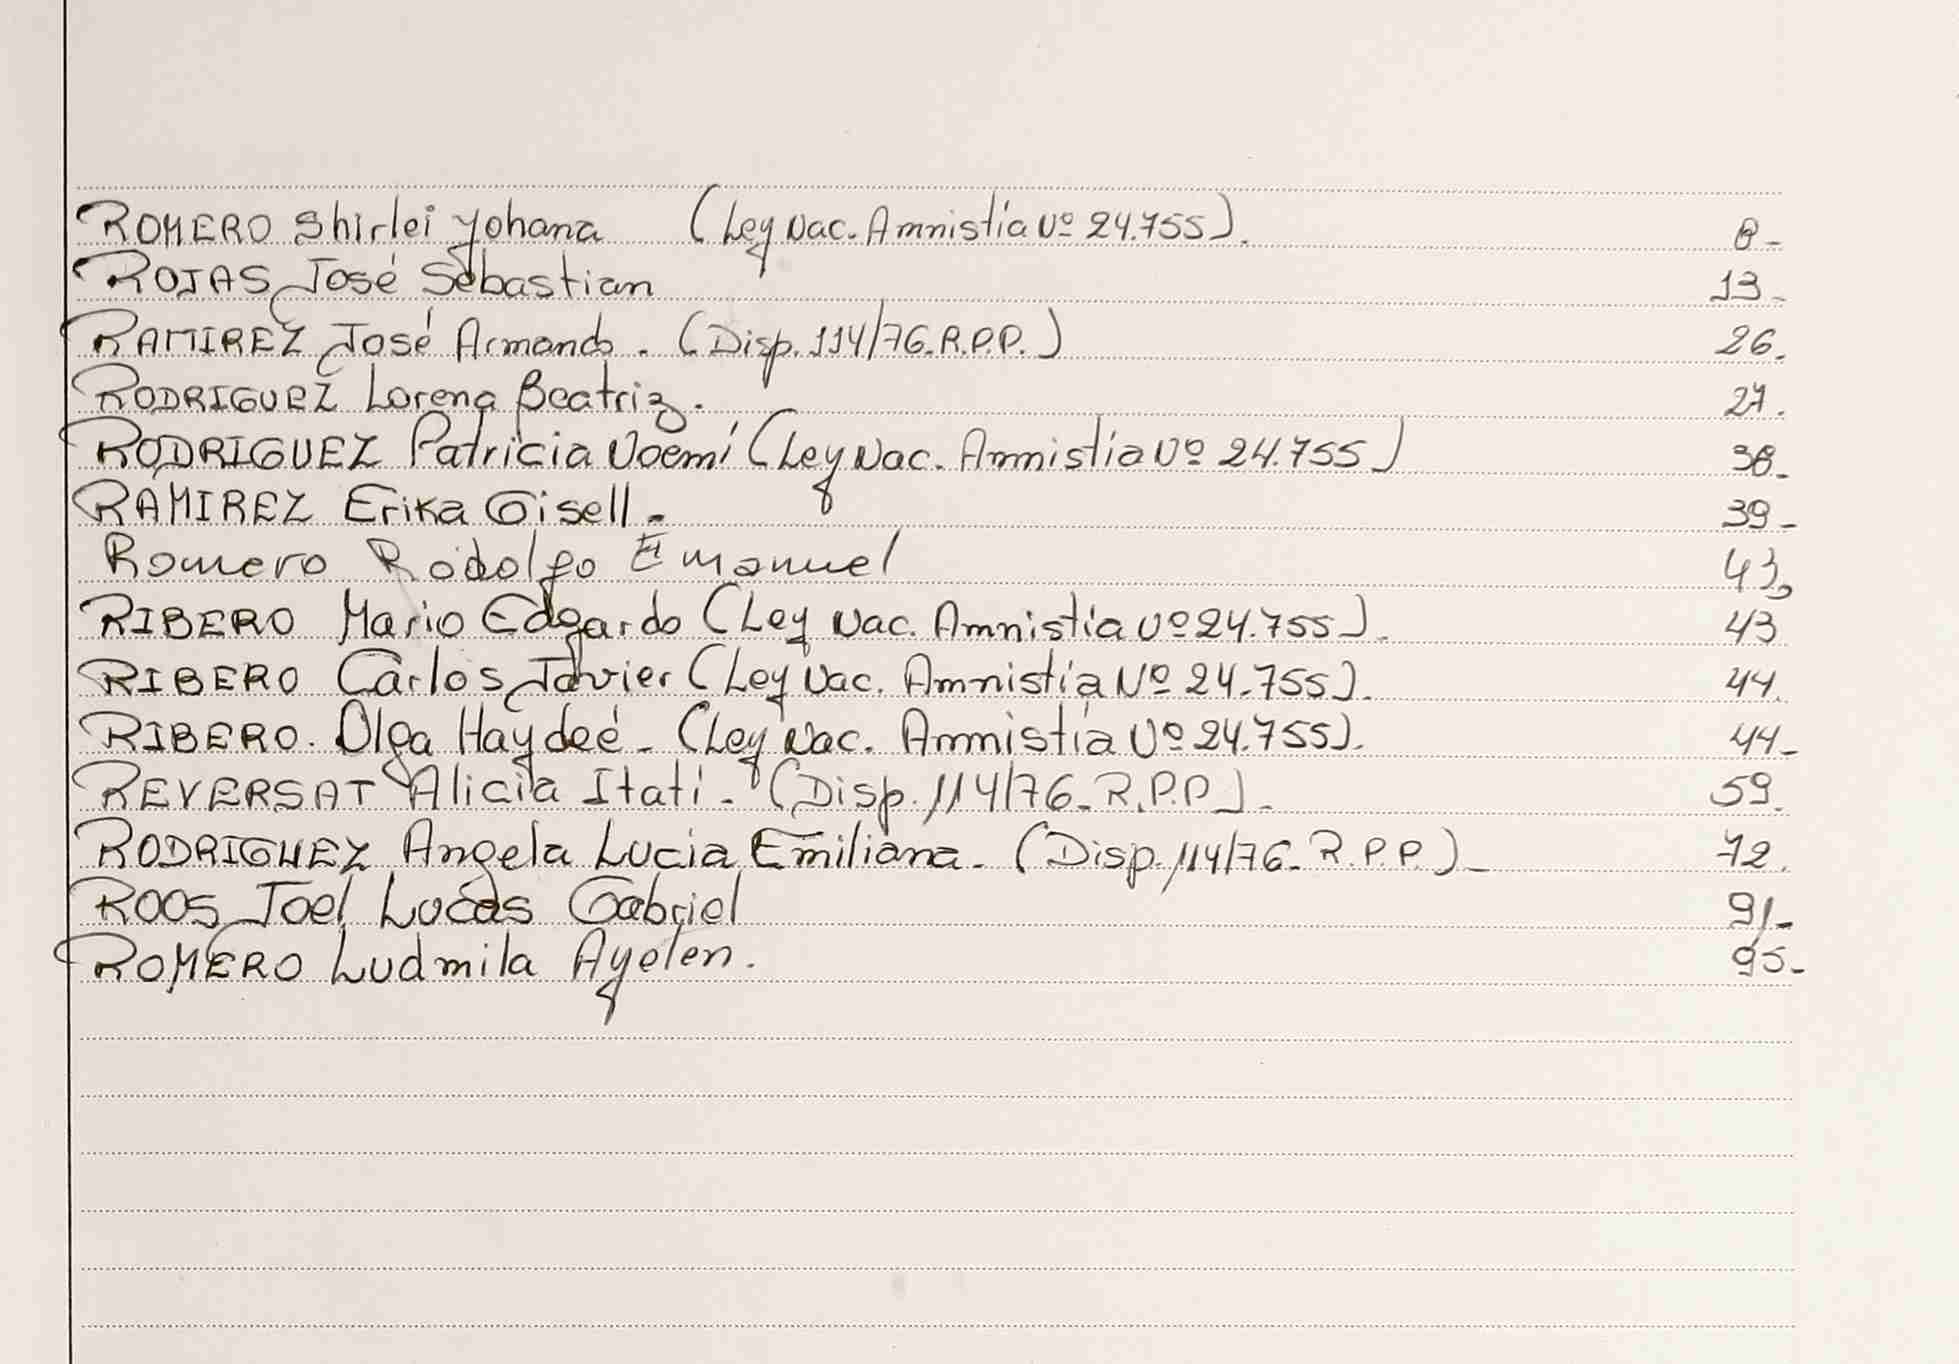 ROMERO Shirlei Yohana (Ley Nac. Amnistía Nº 24.755). 8-
ROJAS José Sebastian 13-
RAMIREZ José Armando. (Disp. 114/76. R.P.P.) 26.
RODRIGUEZ Lorena Beatriz. 27.
RODRIGUEZ Patricia Noemí (Ley Nac. Amnistía Nº 24.755) 38-
RAMIREZ Erika Gisell. 39-
Romero Rodolfo Emanuel 43,
RIBERO Mario Edgardo (Ley Nac. Amnistía Nº 24.755). 43
RIBERO Carlos Javier (Ley Nac. Amnistía Nº 24.755). 44.
RIBERO. Olga Haydeé- (Ley Nac. Amnistía Nº 24.755). 44-
REVERSAT Alicia Itatí- (Disp. 114/76- R.P.P)- 59.
RODRIGUEZ Angela Lucia Emiliana- (Disp. 114/76- R.P.P.)- 72.
ROOS Joel Lucas Gabriel 91-
ROMERO Ludmila Ayelen. 95-